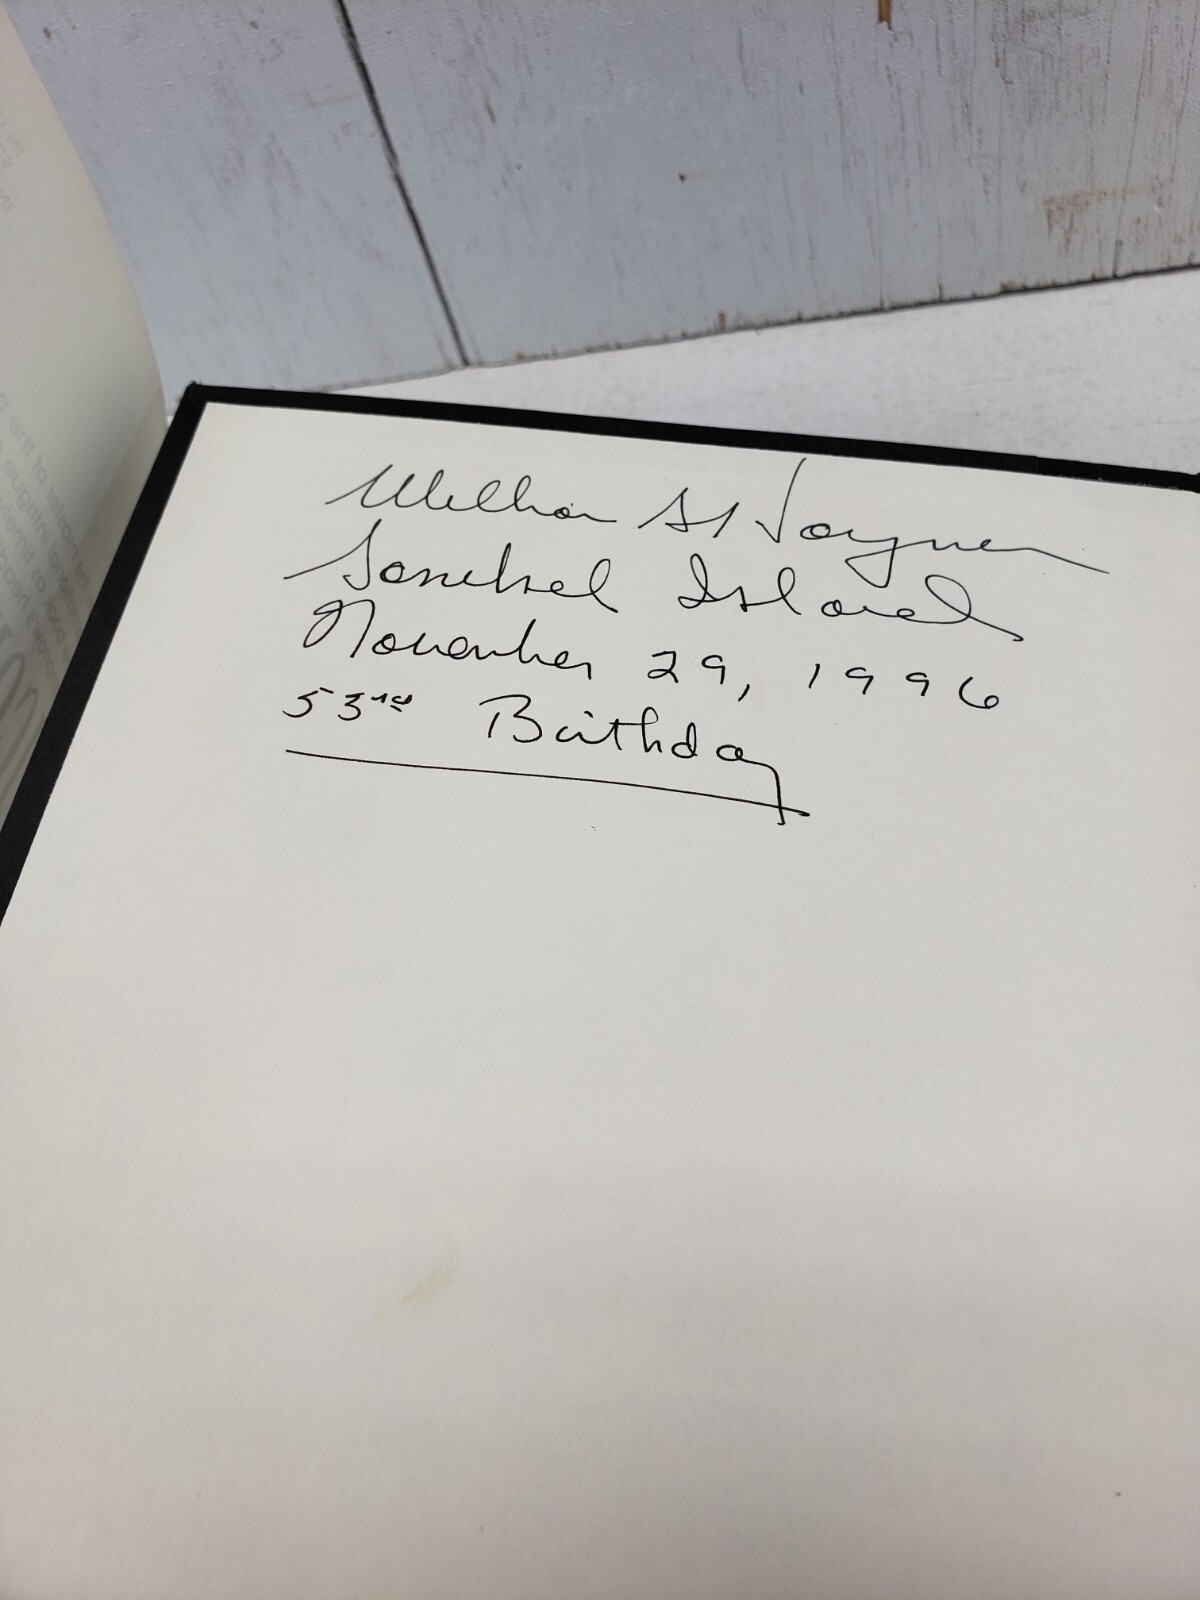 William H Joyner
Sanibel Island
November 29, 1996
53rd Birthday